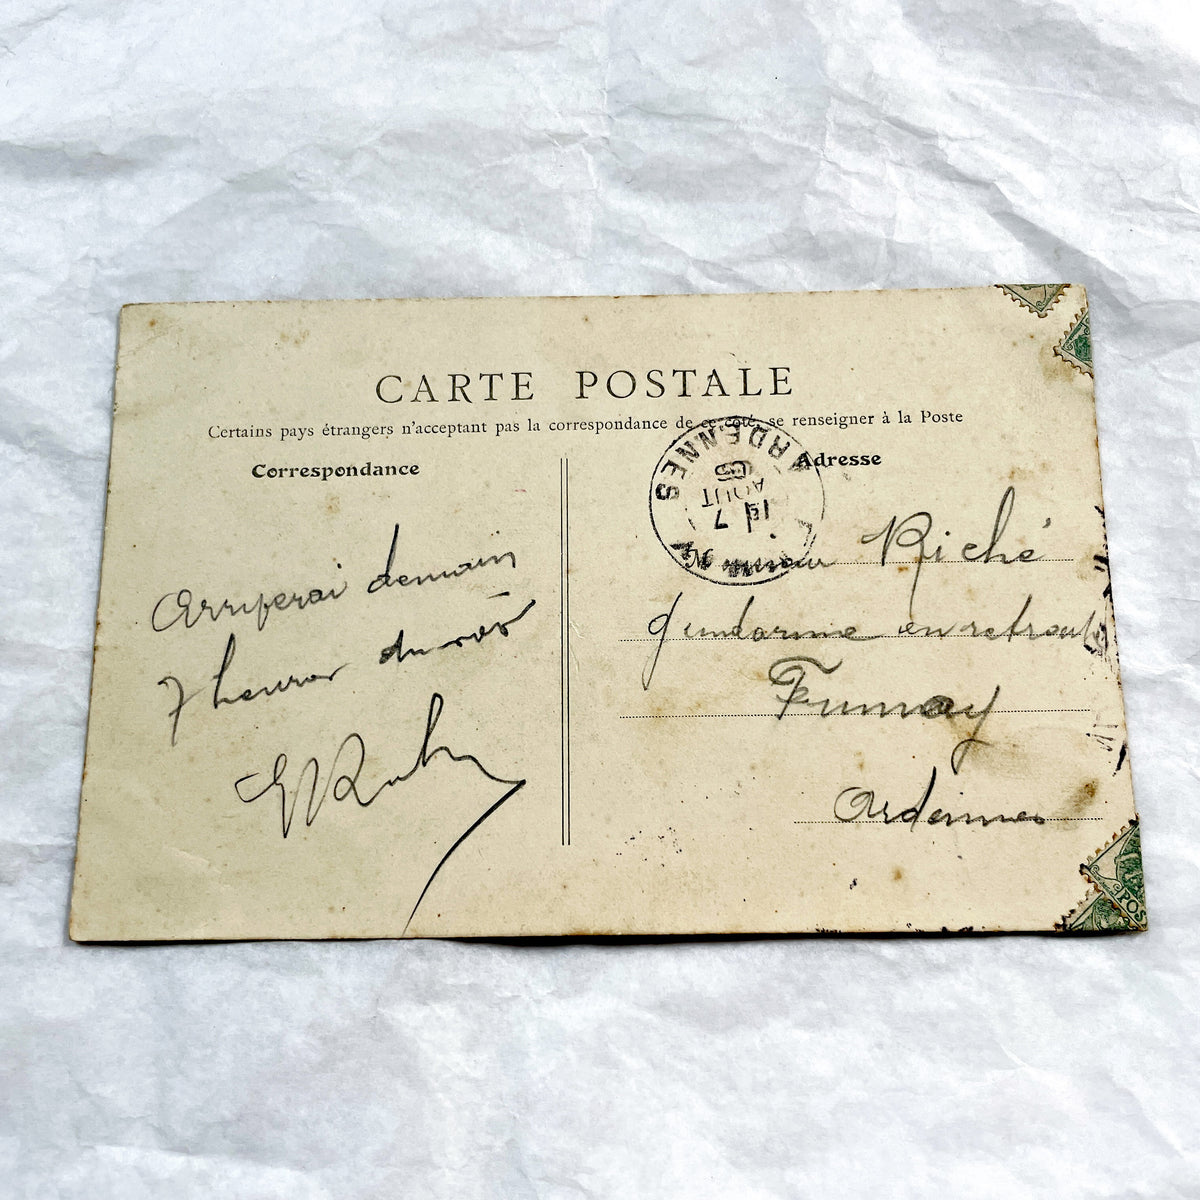 CARTE POSTALE
Certains pays étrangers n'acceptant pas la correspondance de ce côté, se renseigner à la Poste
Correspondance
Adresse
ARDENNES
7
AOUT
Arriverai demain
7 heures du soir
Monsieur Riché
Gendarme en retraite
Fumay
Ardennes
POS